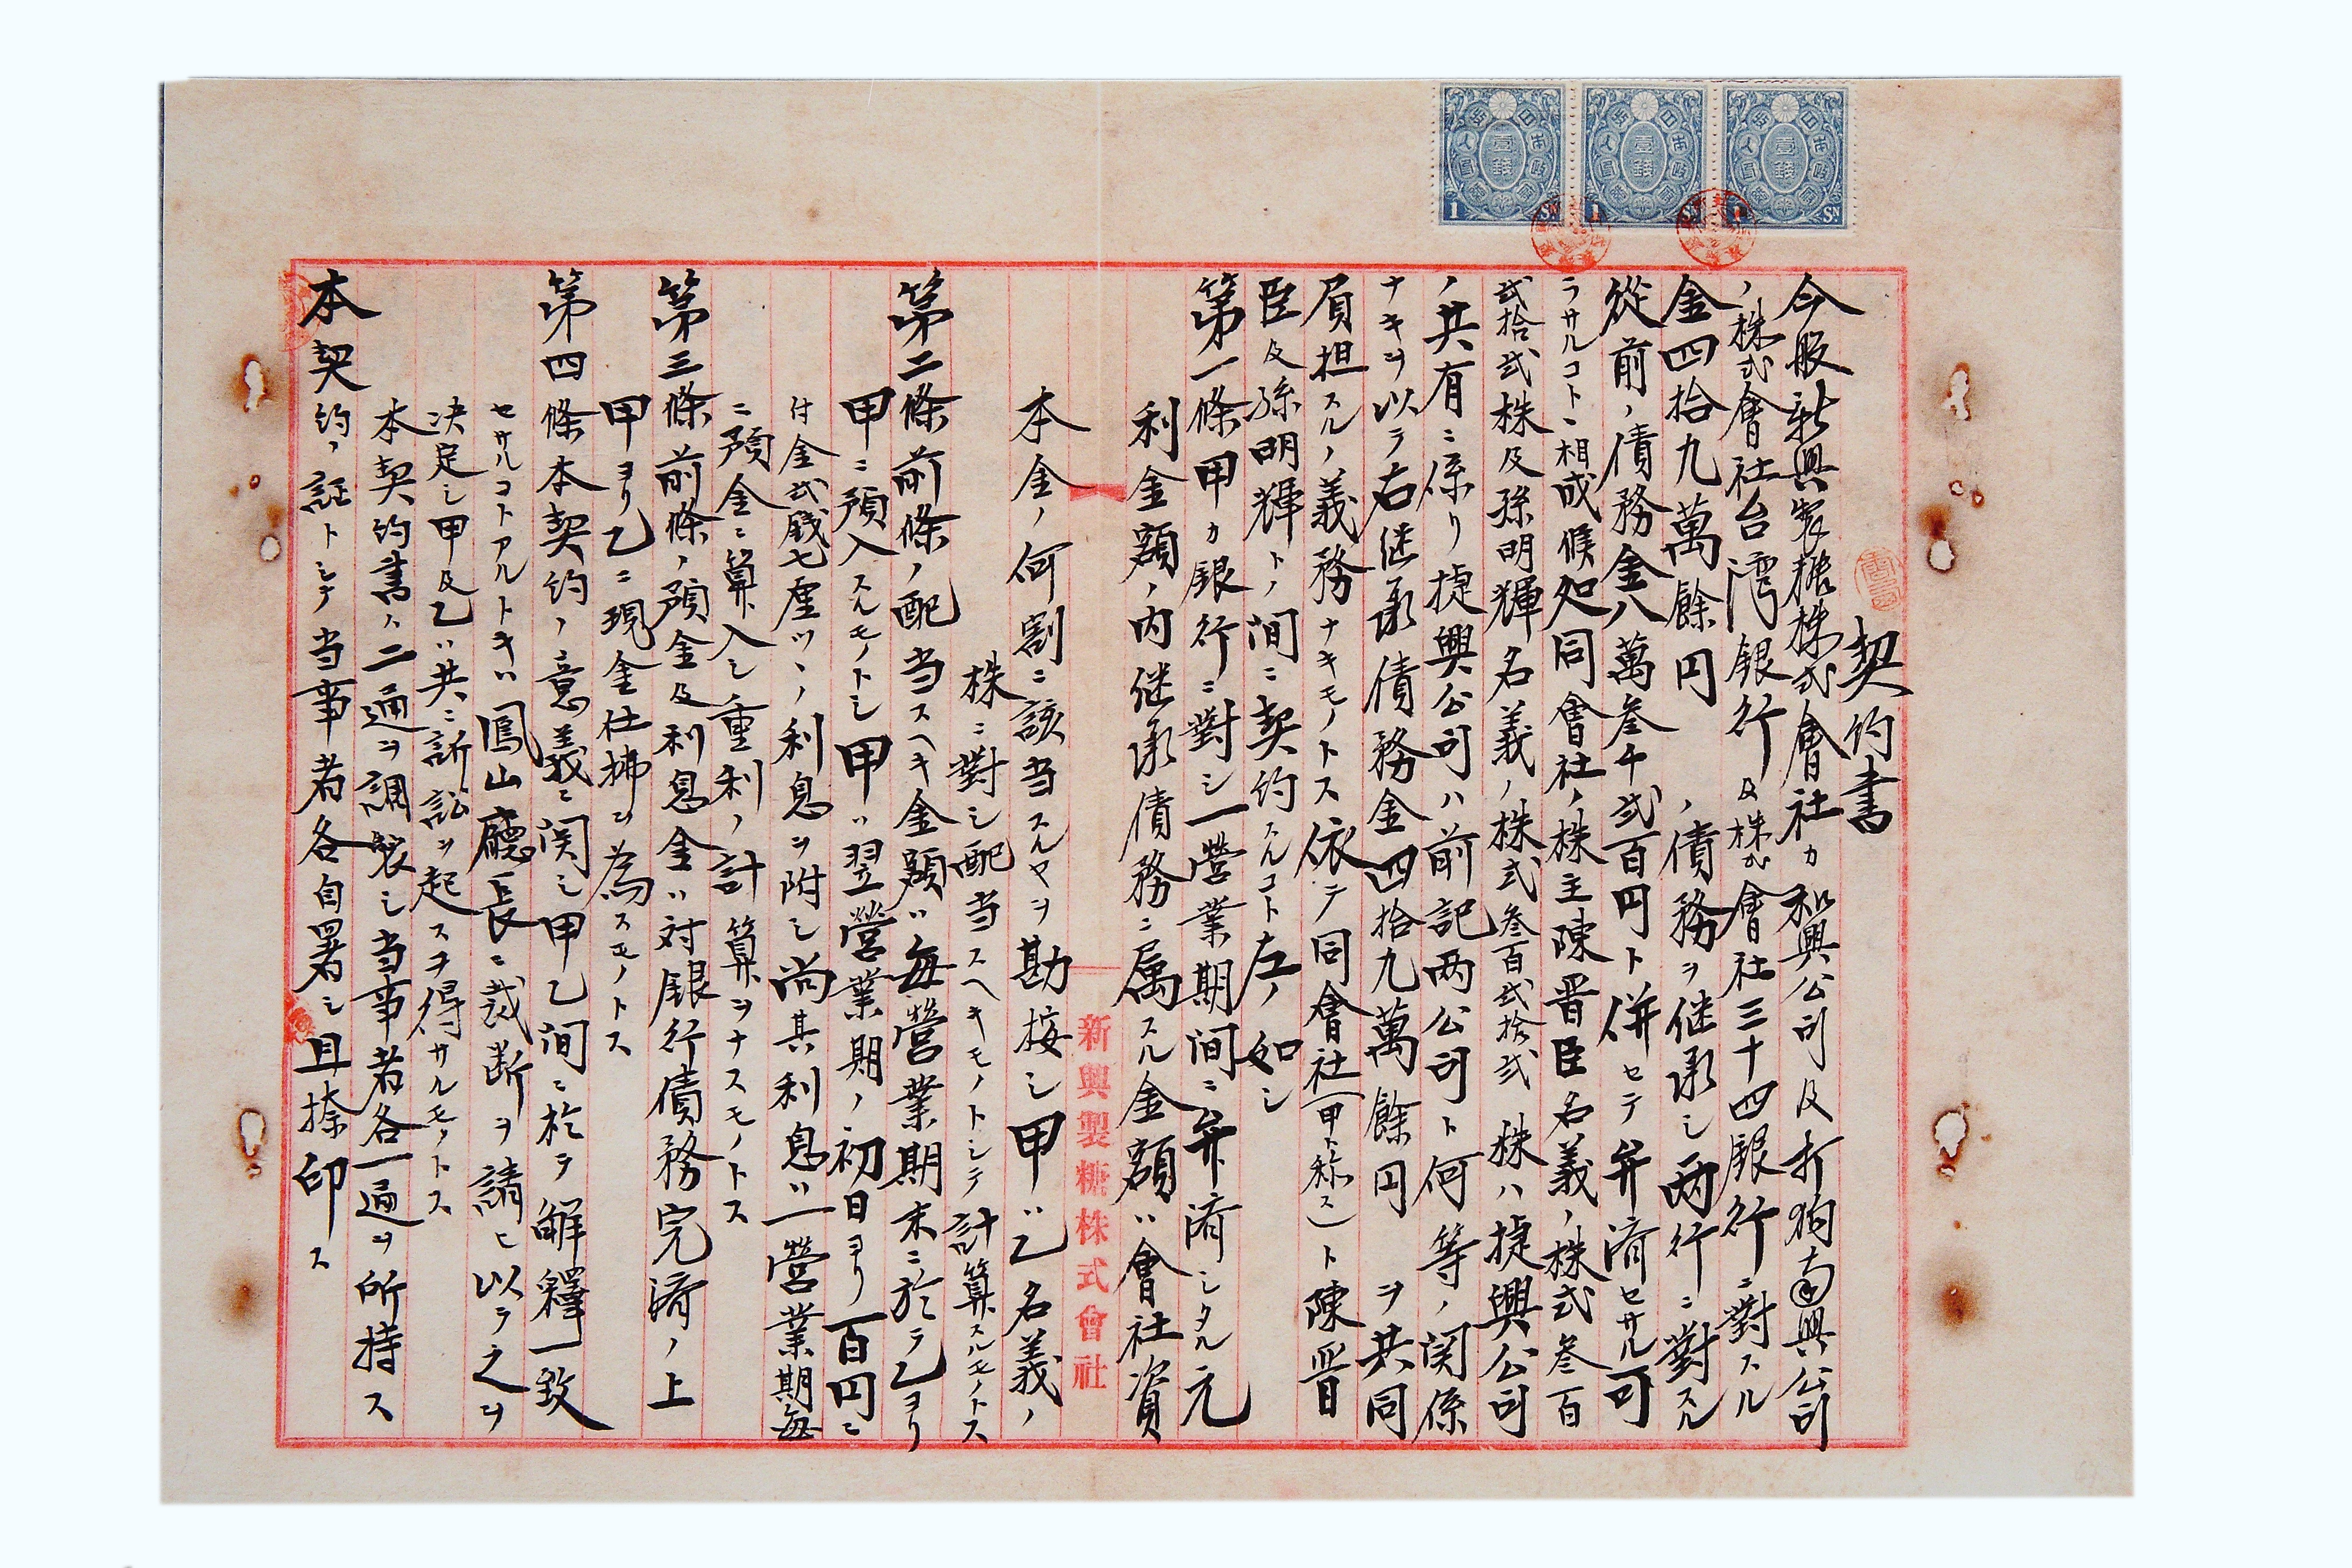 契約書
今般新興製糖株式會社カ和興公司及打狗南興公司
ノ株式會社台湾銀行及株式會社三十四銀行ニ對スル
金四拾九萬餘円ノ債務ヲ継承シ両行ニ對スル
從前ノ債務金八萬叁千弍百円ト併セテ弁済セサル可
ラサルコトヽ相成候処同會社ノ株主陳晋臣名義ノ株式叁百
弍拾弍株及孫明輝名義ノ株式叁百弍拾弍株ハ捷興公司
ノ共有ニ係リ捷興公司ハ前記両公司ト何等ノ関係
ナキヲ以テ右継承債務金四拾九萬餘円ヲ共同
負担スルノ義務ナキモノトス依テ同會社(甲ト称ス)ト陳晋
臣及孫明輝トノ間ニ契約スルコト左ノ如シ
第一條甲カ銀行ニ對シ一營業期间ニ弁済シタル元
利金額ノ内継承債務ニ属スル金額ハ會社資
本金ノ何割ニ該当スルヤヲ勘按シ甲ハ乙名義ノ
株ニ對シ配当スヘキモノトシテ計算スルモノトス
第二條前條ノ配当スヘキ金額ハ毎營業期末ニ於テ乙ヨリ
甲ニ預入スルモノトシ甲ハ翌營業期ノ初日ヨリ百円ニ
付金弍錢七厘ツヽノ利息ヲ附シ尚其利息ハ一營業期毎
ニ預金ニ算入シ重利ノ計算ヲナスモノトス
第三條前條ノ預金及利息金ハ対銀行債務完済ノ上
甲ヨリ乙ニ現金仕拂ヲ為スモノトス
第四條本契約ノ意義ニ関シ甲乙间ニ於テ解釋一致
セサルコトアルトキハ鳳山廳長ニ裁断ヲ請ヒ以テ之ヲ
決定シ甲及乙ハ共ニ訴訟ヲ起スヲ得サルモノトス
本契約書ハ二通ヲ調製シ当事者各一通ヲ所持ス
本契約ノ証トシテ当事者各自署シ且捺印ス
新興製糖株式會社
壹錢
1 Sn
壹錢
1 Sn
壹錢
1 Sn